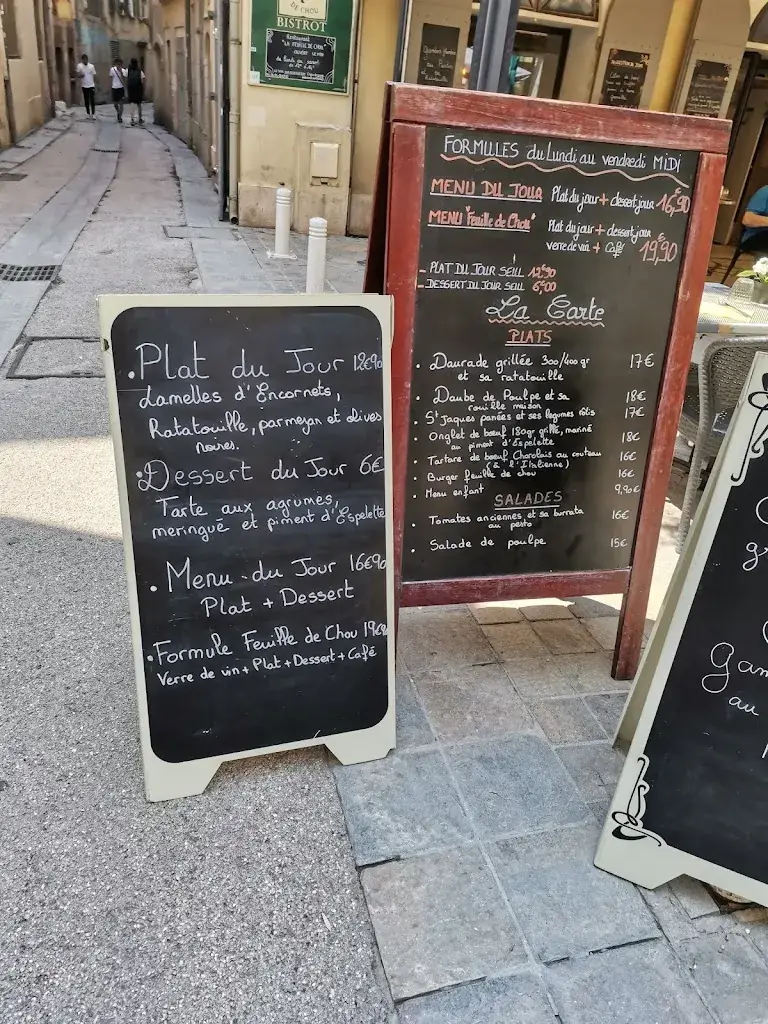 DE CHOU
BISTROT
"LA FEUILLE DE CHOU"
FORMULES du Lundi au vendredi MIDI
MENU DU JOUR Plat du jour + dessert jour 16,90€
MENU "Feuille de Chou" Plat du jour + dessert jour
verre de vin + Café 19,90€
- PLAT DU JOUR SEUL 12,90
- DESSERT DU JOUR SEUL 6,00
La Carte
PLATS
• Daurade grillée 300/400 gr 17€
et sa ratatouille
• Daube de Poulpe et sa 18€
rouille maison
• St Jaques panées et ses légumes rôtis 17€
• Onglet de bœuf 180gr grillé, mariné
au piment d'Espelette 18€
• Tartare de bœuf Charolais au couteau 16€
(à l'Italienne)
• Burger feuille de chou 16€
• Menu enfant 9,90€
SALADES
• Tomates anciennes et sa burrata 16€
au pesto
• Salade de poulpe 15€
• Plat du Jour 12€90
Lamelles d'Encornets,
Ratatouille, parmejan et olives
noires.
• Dessert du Jour 6€
Tarte aux agrumes,
meringué et piment d'Espelette
• Menu du Jour 16€90
Plat + Dessert
• Formule Feuille de Chou 19€90
Verre de vin + Plat + Dessert + Café
au